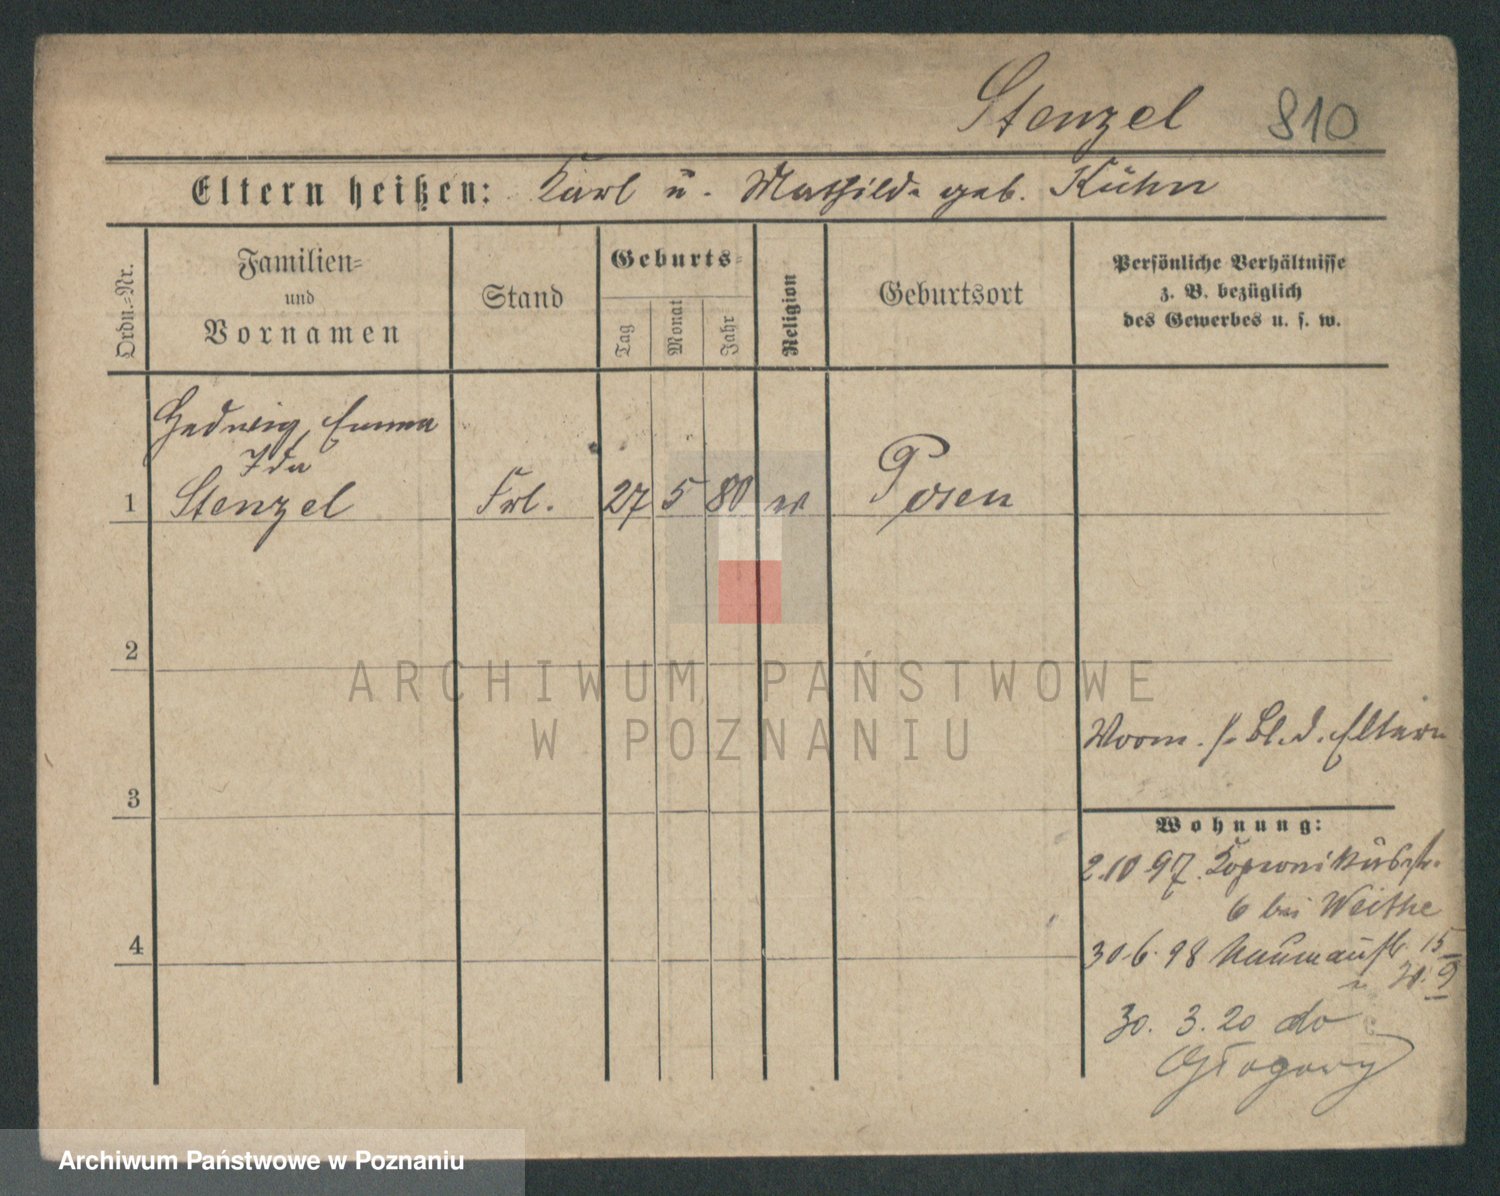 Stenzel 810
Eltern heißen: Karl u. Mathilde geb. Kühn
Ordn.=Nr.
Familien=
und
Vornamen
Stand
Geburts=
Tag
Monat
Jahr
Religion
Geburtsort
Persönliche Verhältnisse
z. B. bezüglich
des Gewerbes u. s. w.
Hedwig, Emma
Ida
1 Stenzel Frl. 27 5 80 Posen
2
ARCHIWUM PAŃSTWOWE
W POZNANIU
Vorm. s. Bl. d. Eltern
3
Wohnung:
2.10 97. Kopernikusstr.
6 bei Weithe
4
30.6.98 Naumannstr. 15
30. 3. 20 do
Głogowy
Archiwum Państwowe w Poznaniu